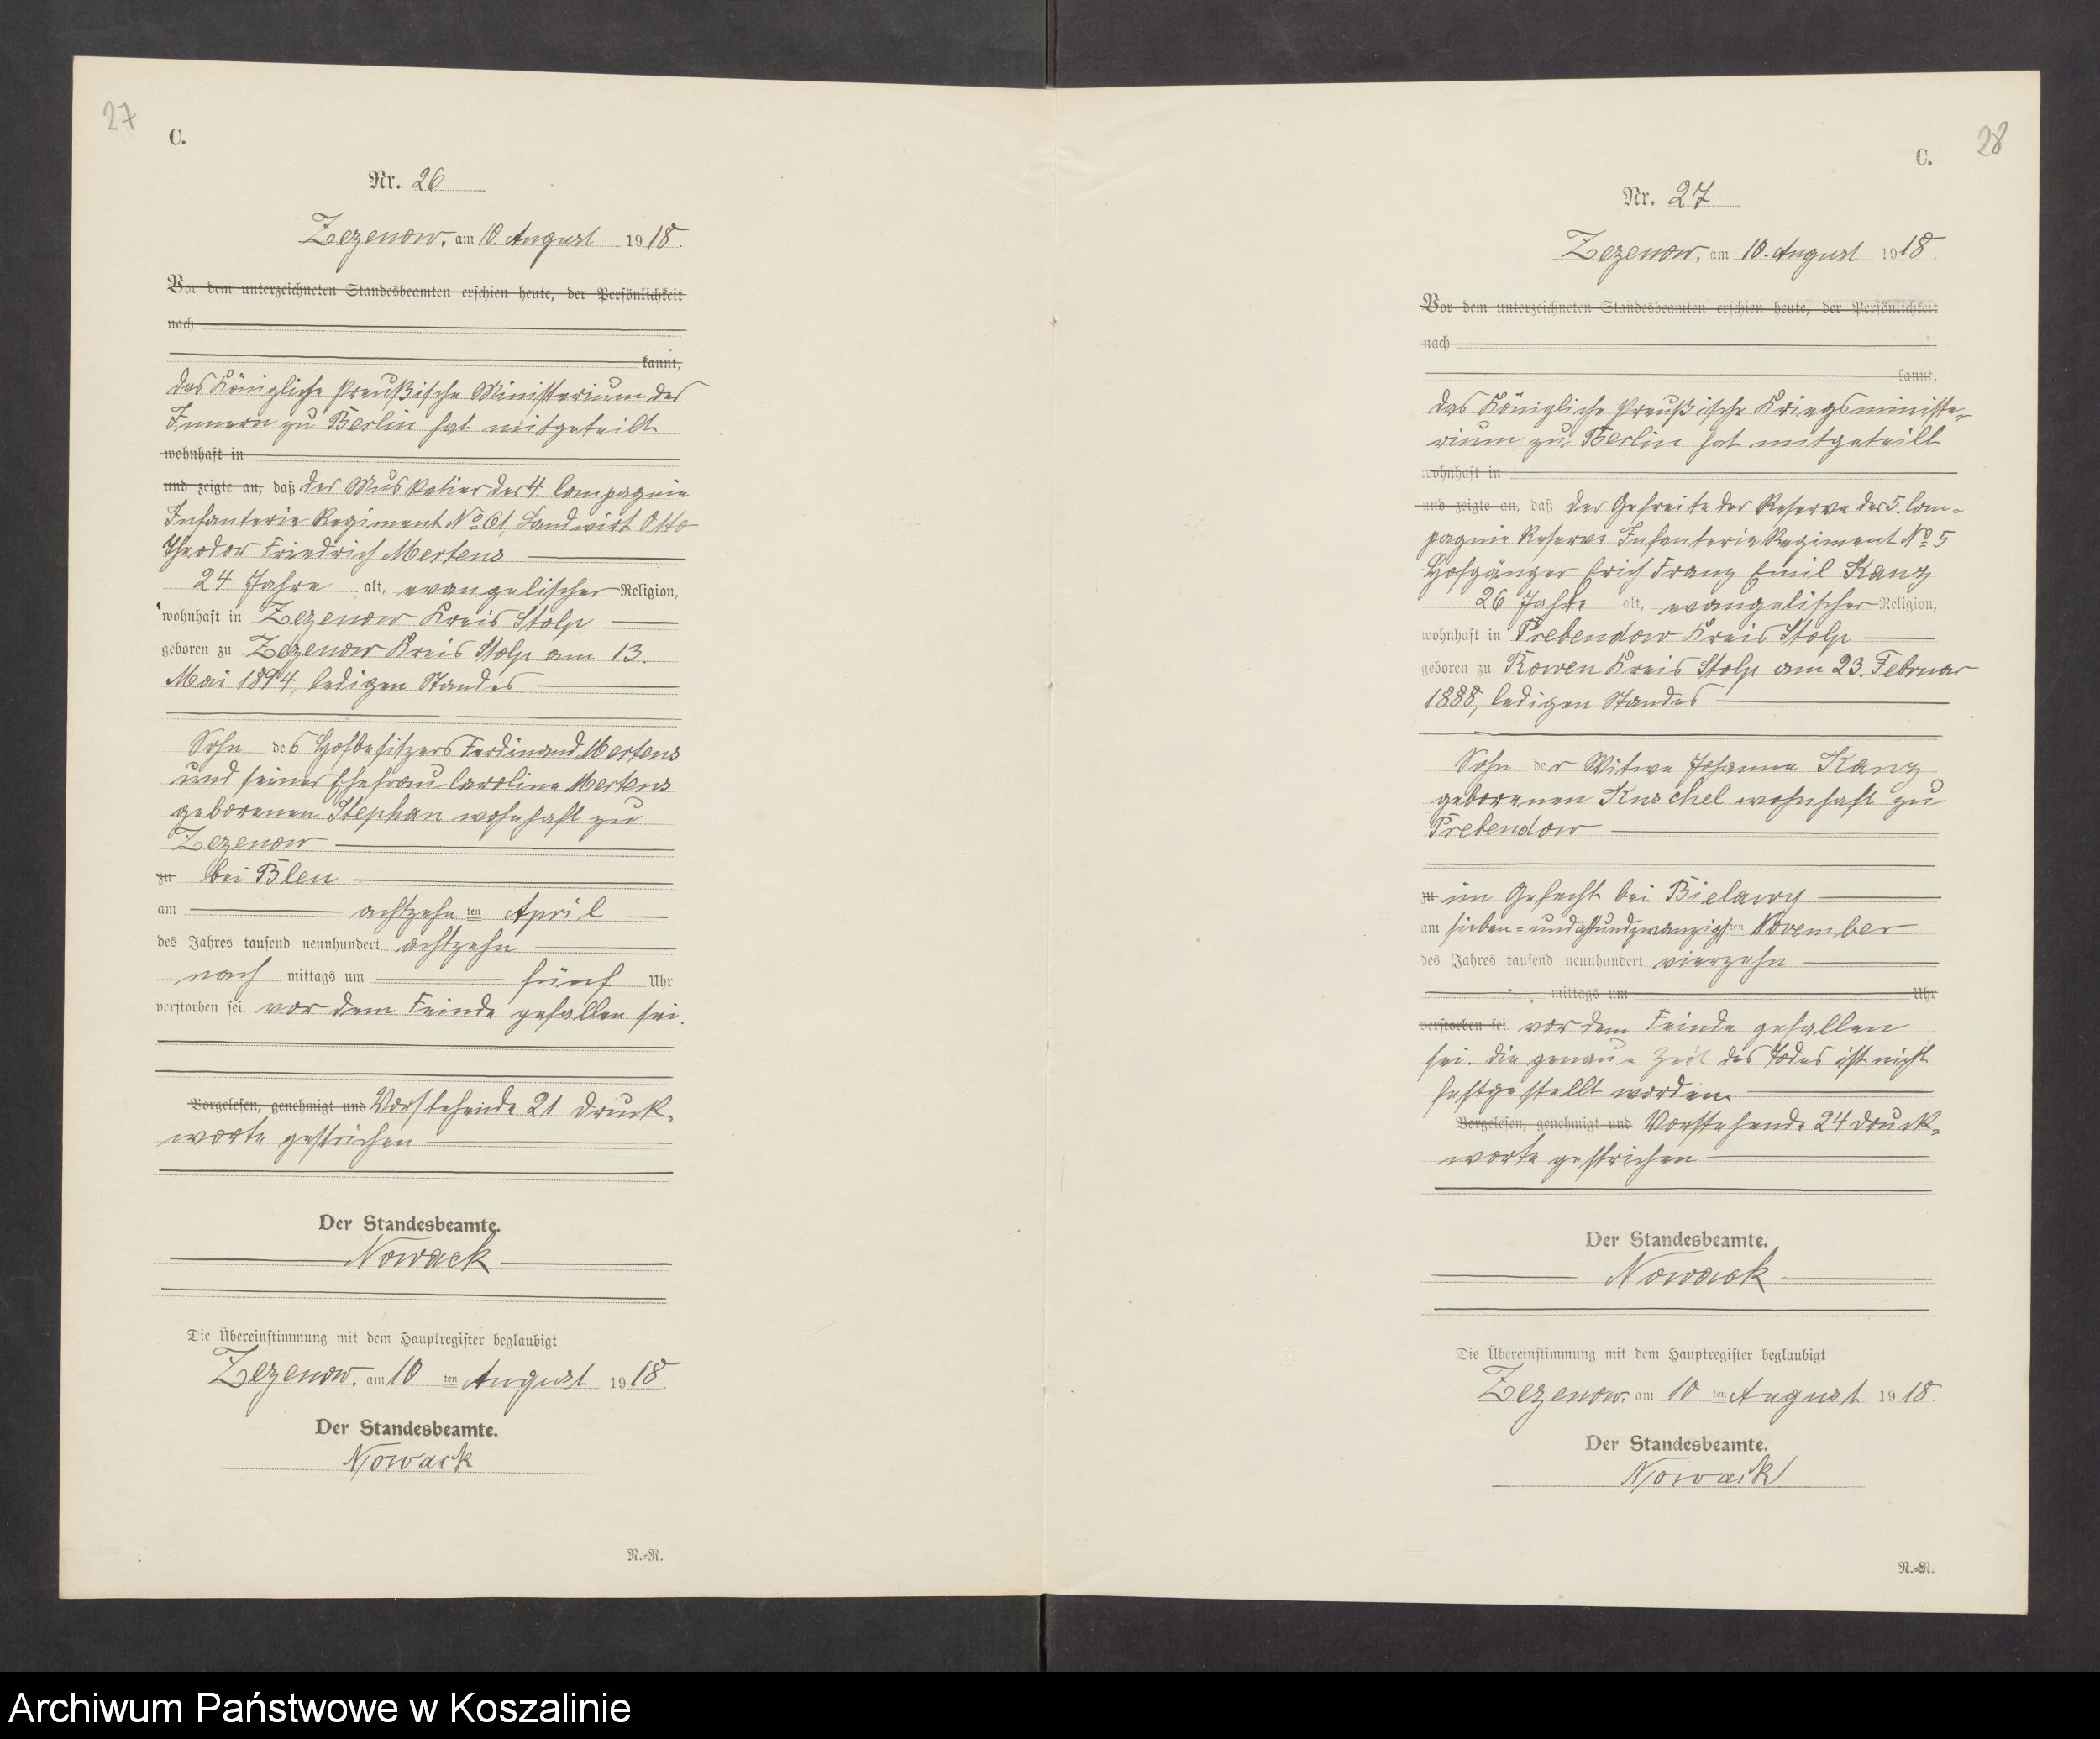 27
C.
Nr. 26
Zezenow, am 10. August 1918.
Vor dem unterzeichneten Standesbeamten erschien heute, der Persönlichkeit
nach
kannt,
das Königliche Preußische Ministerium des
Innern zu Berlin hat mitgeteilt
wohnhaft in
und zeigte an, daß der Musketier der 4. Compagnie
Infanterie Regiment No 61, Landwirt Otto
Theodor Friedrich Mertens
24 Jahre alt, evangelischer Religion,
wohnhaft in Zezenow Kreis Stolp
geboren zu Zezenow Kreis Stolp am 13.
Mai 1894, ledigen Standes
Sohn des Hofbesitzers Ferdinand Mertens
und seiner Ehefrau Caroline Mertens
geborenen Stephan wohnhaft zu
Zezenow
zu bei Blen
am achtzehnten April
des Jahres tausend neunhundert achtzehn
nach mittags um fünf Uhr
verstorben sei. vor dem Feinde gefallen sei.
Vorgelesen, genehmigt und Vorstehende 21 Druck-
worte gestrichen
Der Standesbeamte.
Nowack
Die Übereinstimmung mit dem Hauptregister beglaubigt
Zezenow, am 10 ten August 1918.
Der Standesbeamte.
Nowack
N.=R.
28
C.
Nr. 27
Zezenow, am 10. August 1918
Vor dem unterzeichneten Standesbeamten erschien heute, der Persönlichkeit
nach
kannt,
das Königliche Preußische Kriegsministe-
rium zu Berlin hat mitgeteilt
wohnhaft in
und zeigte an, daß der Gefreite der Reserve der 5. Com-
pagnie Reserve Infanterie Regiment No 5
Hofgänger Erich Franz Emil Kanz
26 Jahre alt, evangelischer Religion,
wohnhaft in Prebendow Kreis Stolp
geboren zu Rowen Kreis Stolp am 23. Februar
1888, ledigen Standes
Sohn der Witwe Johanna Kanz
geborenen Kuschel wohnhaft zu
Prebendow
zu im Gefecht bei Bielawy
am sieben= und achtundzwanzigsten November
des Jahres tausend neunhundert vierzehn
mittags um Uhr
verstorben sei. vor dem Feinde gefallen
sei. die genaue Zeit des Todes ist nicht
festgestellt worden.
Vorgelesen, genehmigt und Vorstehende 24 Druck-
worte gestrichen
Der Standesbeamte.
Nowack
Die Übereinstimmung mit dem Hauptregister beglaubigt
Zezenow, am 10 ten August 1918.
Der Standesbeamte.
Nowack
N.=R.
Archiwum Państwowe w Koszalinie